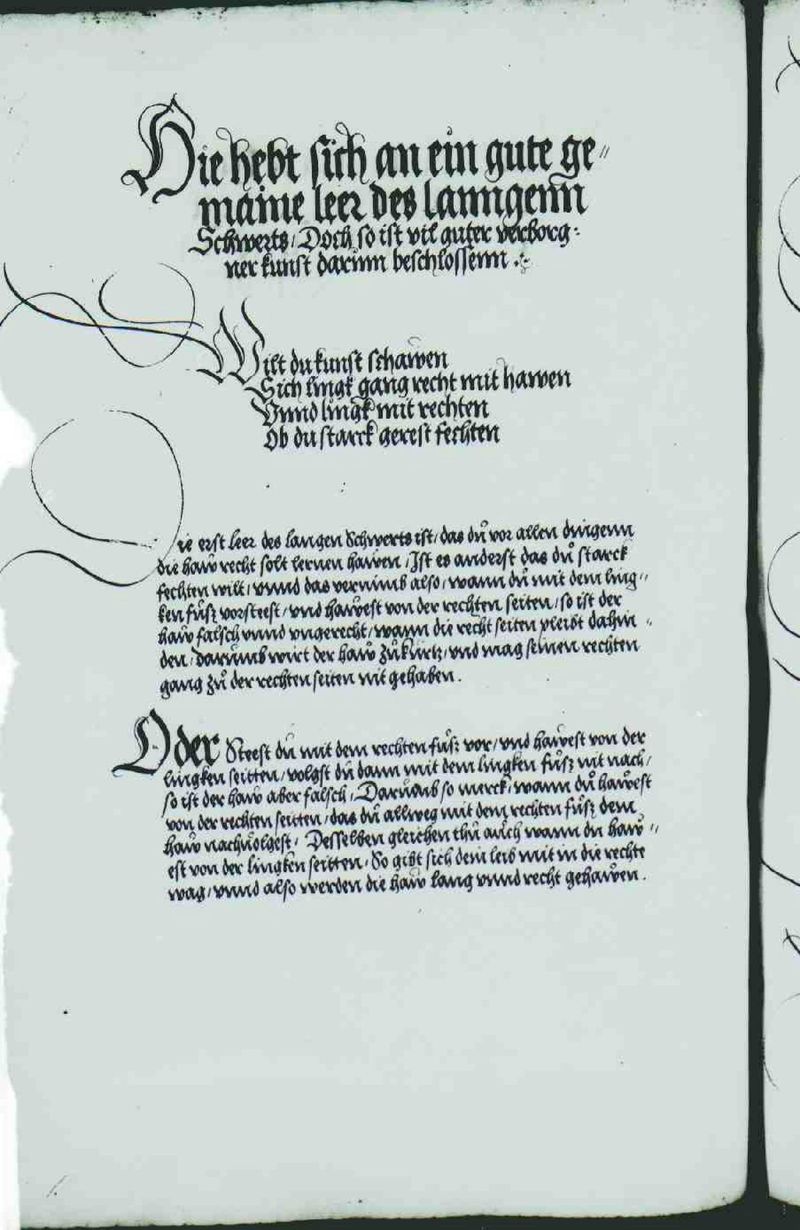 Hie hebt sich an ein gute ge〃
maine leer des lanngenn
Schwerts / Doch so ist vil guter verborg⸗
ner kunst darinn beschlossenn
Wilt du kunst schawen
Sich lingk gang recht mit hawen
Vnnd lingk mit rechten
Ob du starck gerest fechten
ie erst leer des langen Schwerts ist / das dů vor allen dingenn
die haw recht solt lernen hawen / Ist es anderst das dů starck
fechten wilt / vnnd das vernimb also / wann dů mit dem ling〃
ken fůsz vorsteest / vnd hawest von der rechten seiten / so ist der
haw falsch vnnd vngerecht / wann die recht seiten pleibt dahin〃
den / darumb wirt der haw zůkurtz / vnd mag seinen rechten
gang zů der rechten seiten nit gehaben .
Oder Steest dů mit dem rechten fůsz vor / vnd hawest von der
lingken seitten / volgst dů dann mit dem lingken fůsz nit nach /
so ist der haw aber falsch / Darumb so merck / wann dů hawest
von der rechten seitten / das dů allweg mit dem rechten fůsz dem
haw nachuolgest / Desselben gleichen thů auch wann du haw〃
est von der lingken seitten / So gibt sich dein leib mit in die rechte
wag / vnnd also werden die haw lang vnnd recht gehawen .